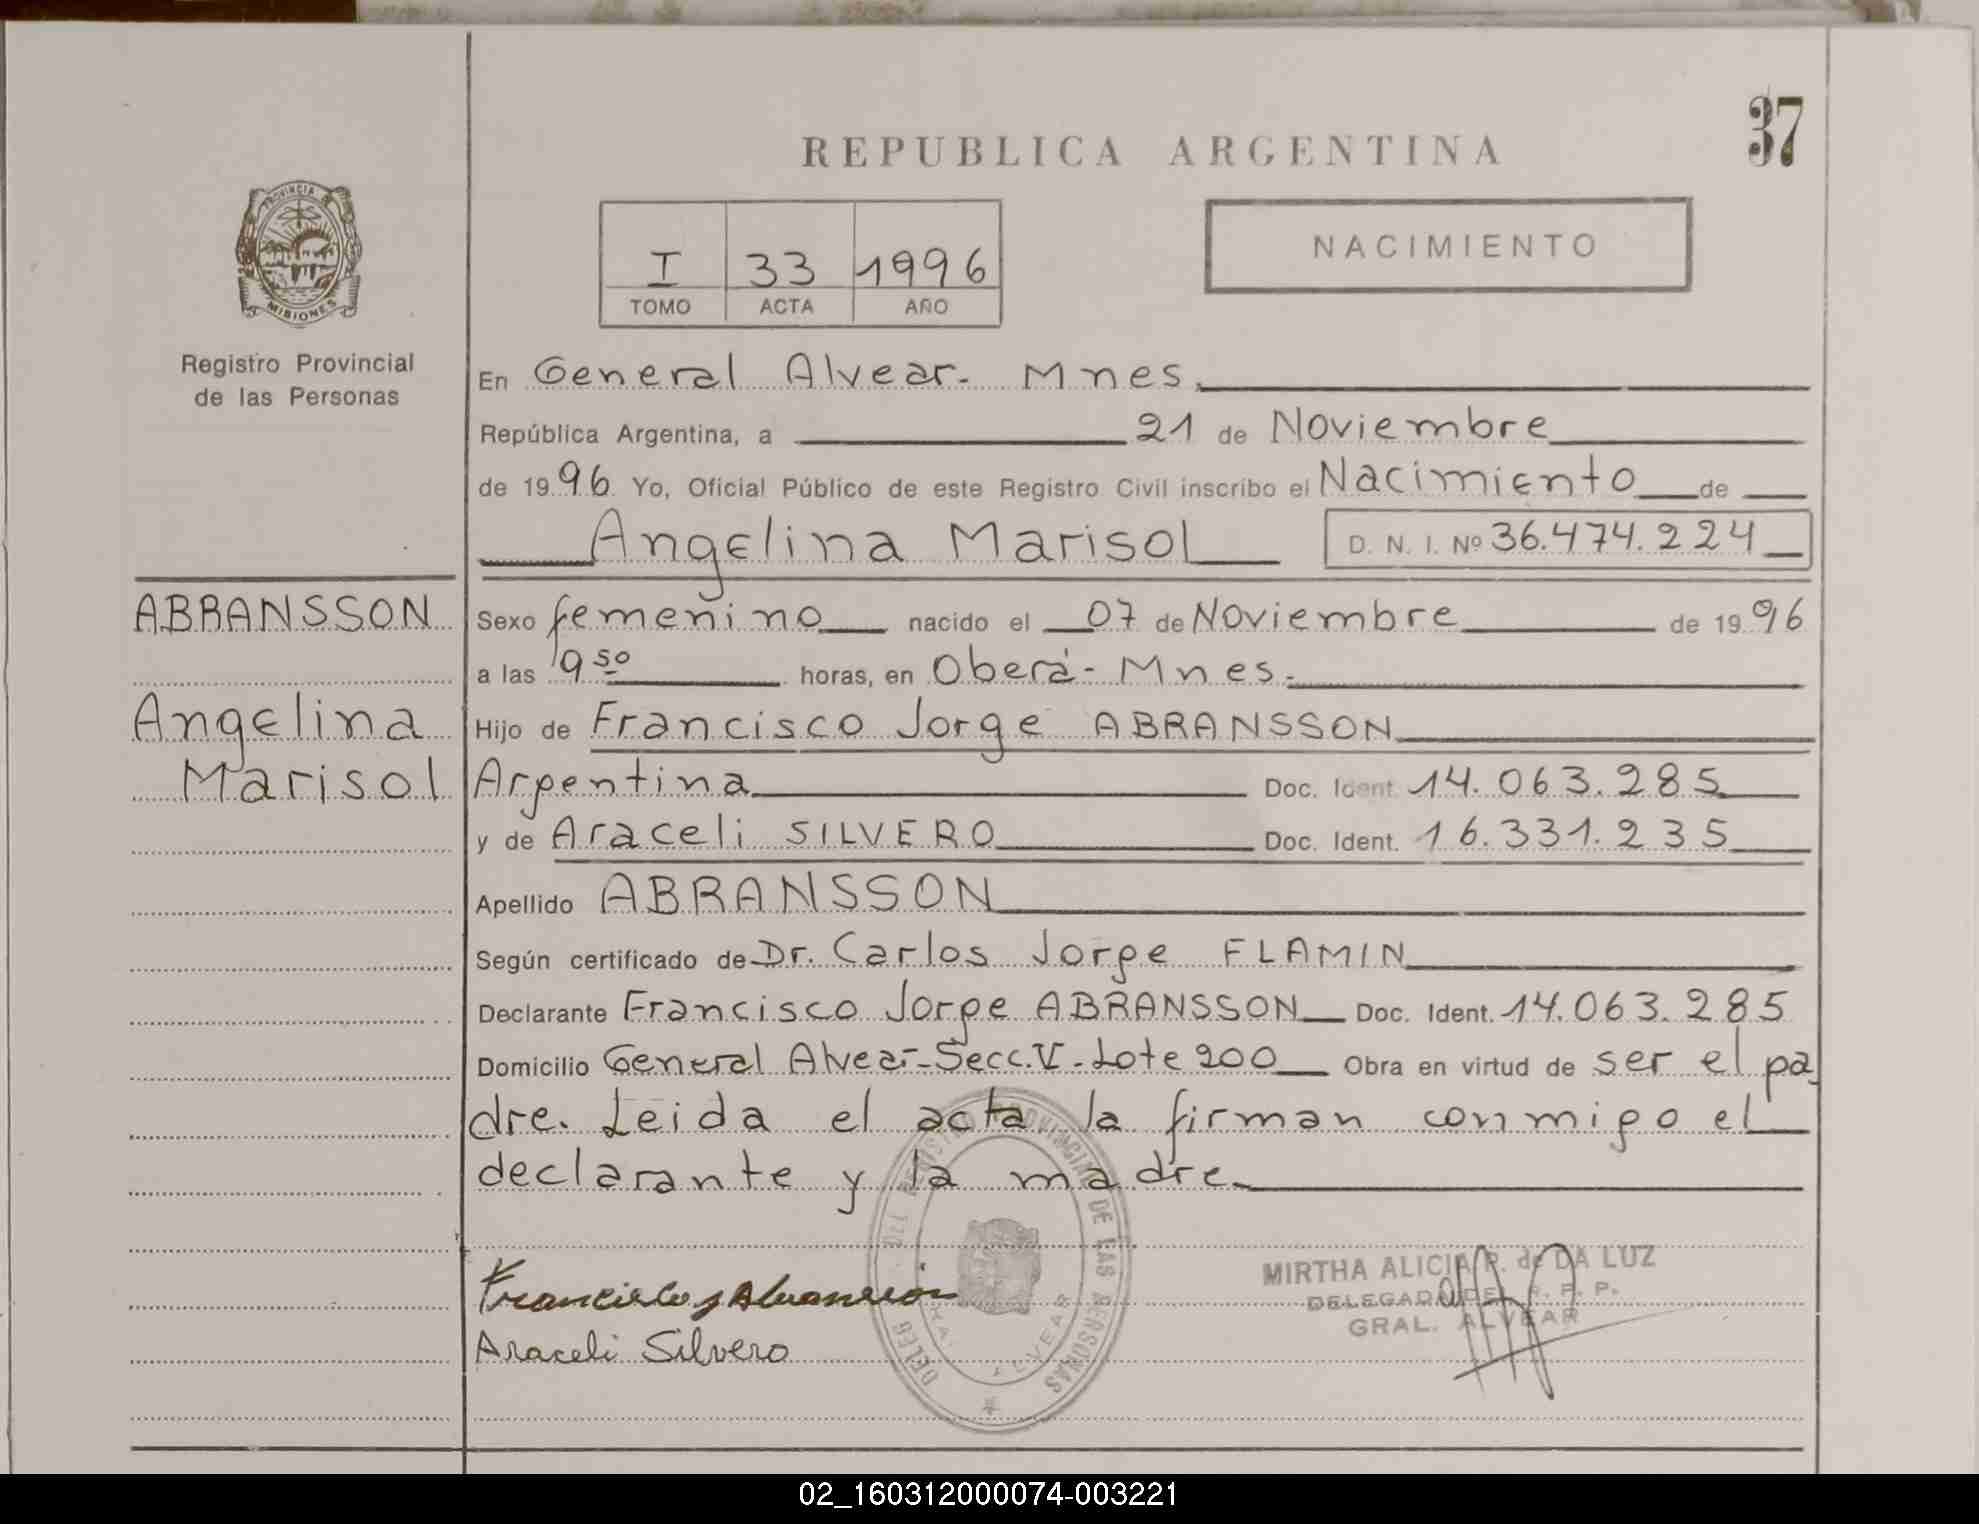 37
REPUBLICA ARGENTINA
PROVINCIA
MISIONES
I 33 1996
TOMO ACTA AÑO
NACIMIENTO
Registro Provincial
de las Personas
En General Alvear- Mnes.
República Argentina, a 21 de Noviembre
de 1996 Yo, Oficial Público de este Registro Civil inscribo el Nacimiento de
Angelina Marisol D. N. I. Nº 36.474.224
ABRANSSON
Angelina
Marisol
Sexo femenino nacido el 07 de Noviembre de 1996
a las 19 50 horas, en Oberá- Mnes.
Hijo de Francisco Jorge ABRANSSON
Argentina Doc. Ident. 14.063.285
y de Araceli SILVERO Doc. Ident. 16.331.235
Apellido ABRANSSON
Según certificado de Dr. Carlos Jorge FLAMIN
Declarante Francisco Jorge ABRANSSON Doc. Ident. 14.063.285
Domicilio General Alvear-Secc.V-Lote 200 Obra en virtud de ser el pa
dre. Leida el acta la firman conmigo el
declarante y la madre.
DELEG DEL REGISTRO PROVINCIAL DE LAS PERSONAS
ALVEAR
Francisco J Abransson
Araceli Silvero
MIRTHA ALICIA R. de DA LUZ
DELEGADA DEL R. P. P.
GRAL. ALVEAR
02_160312000074-003221